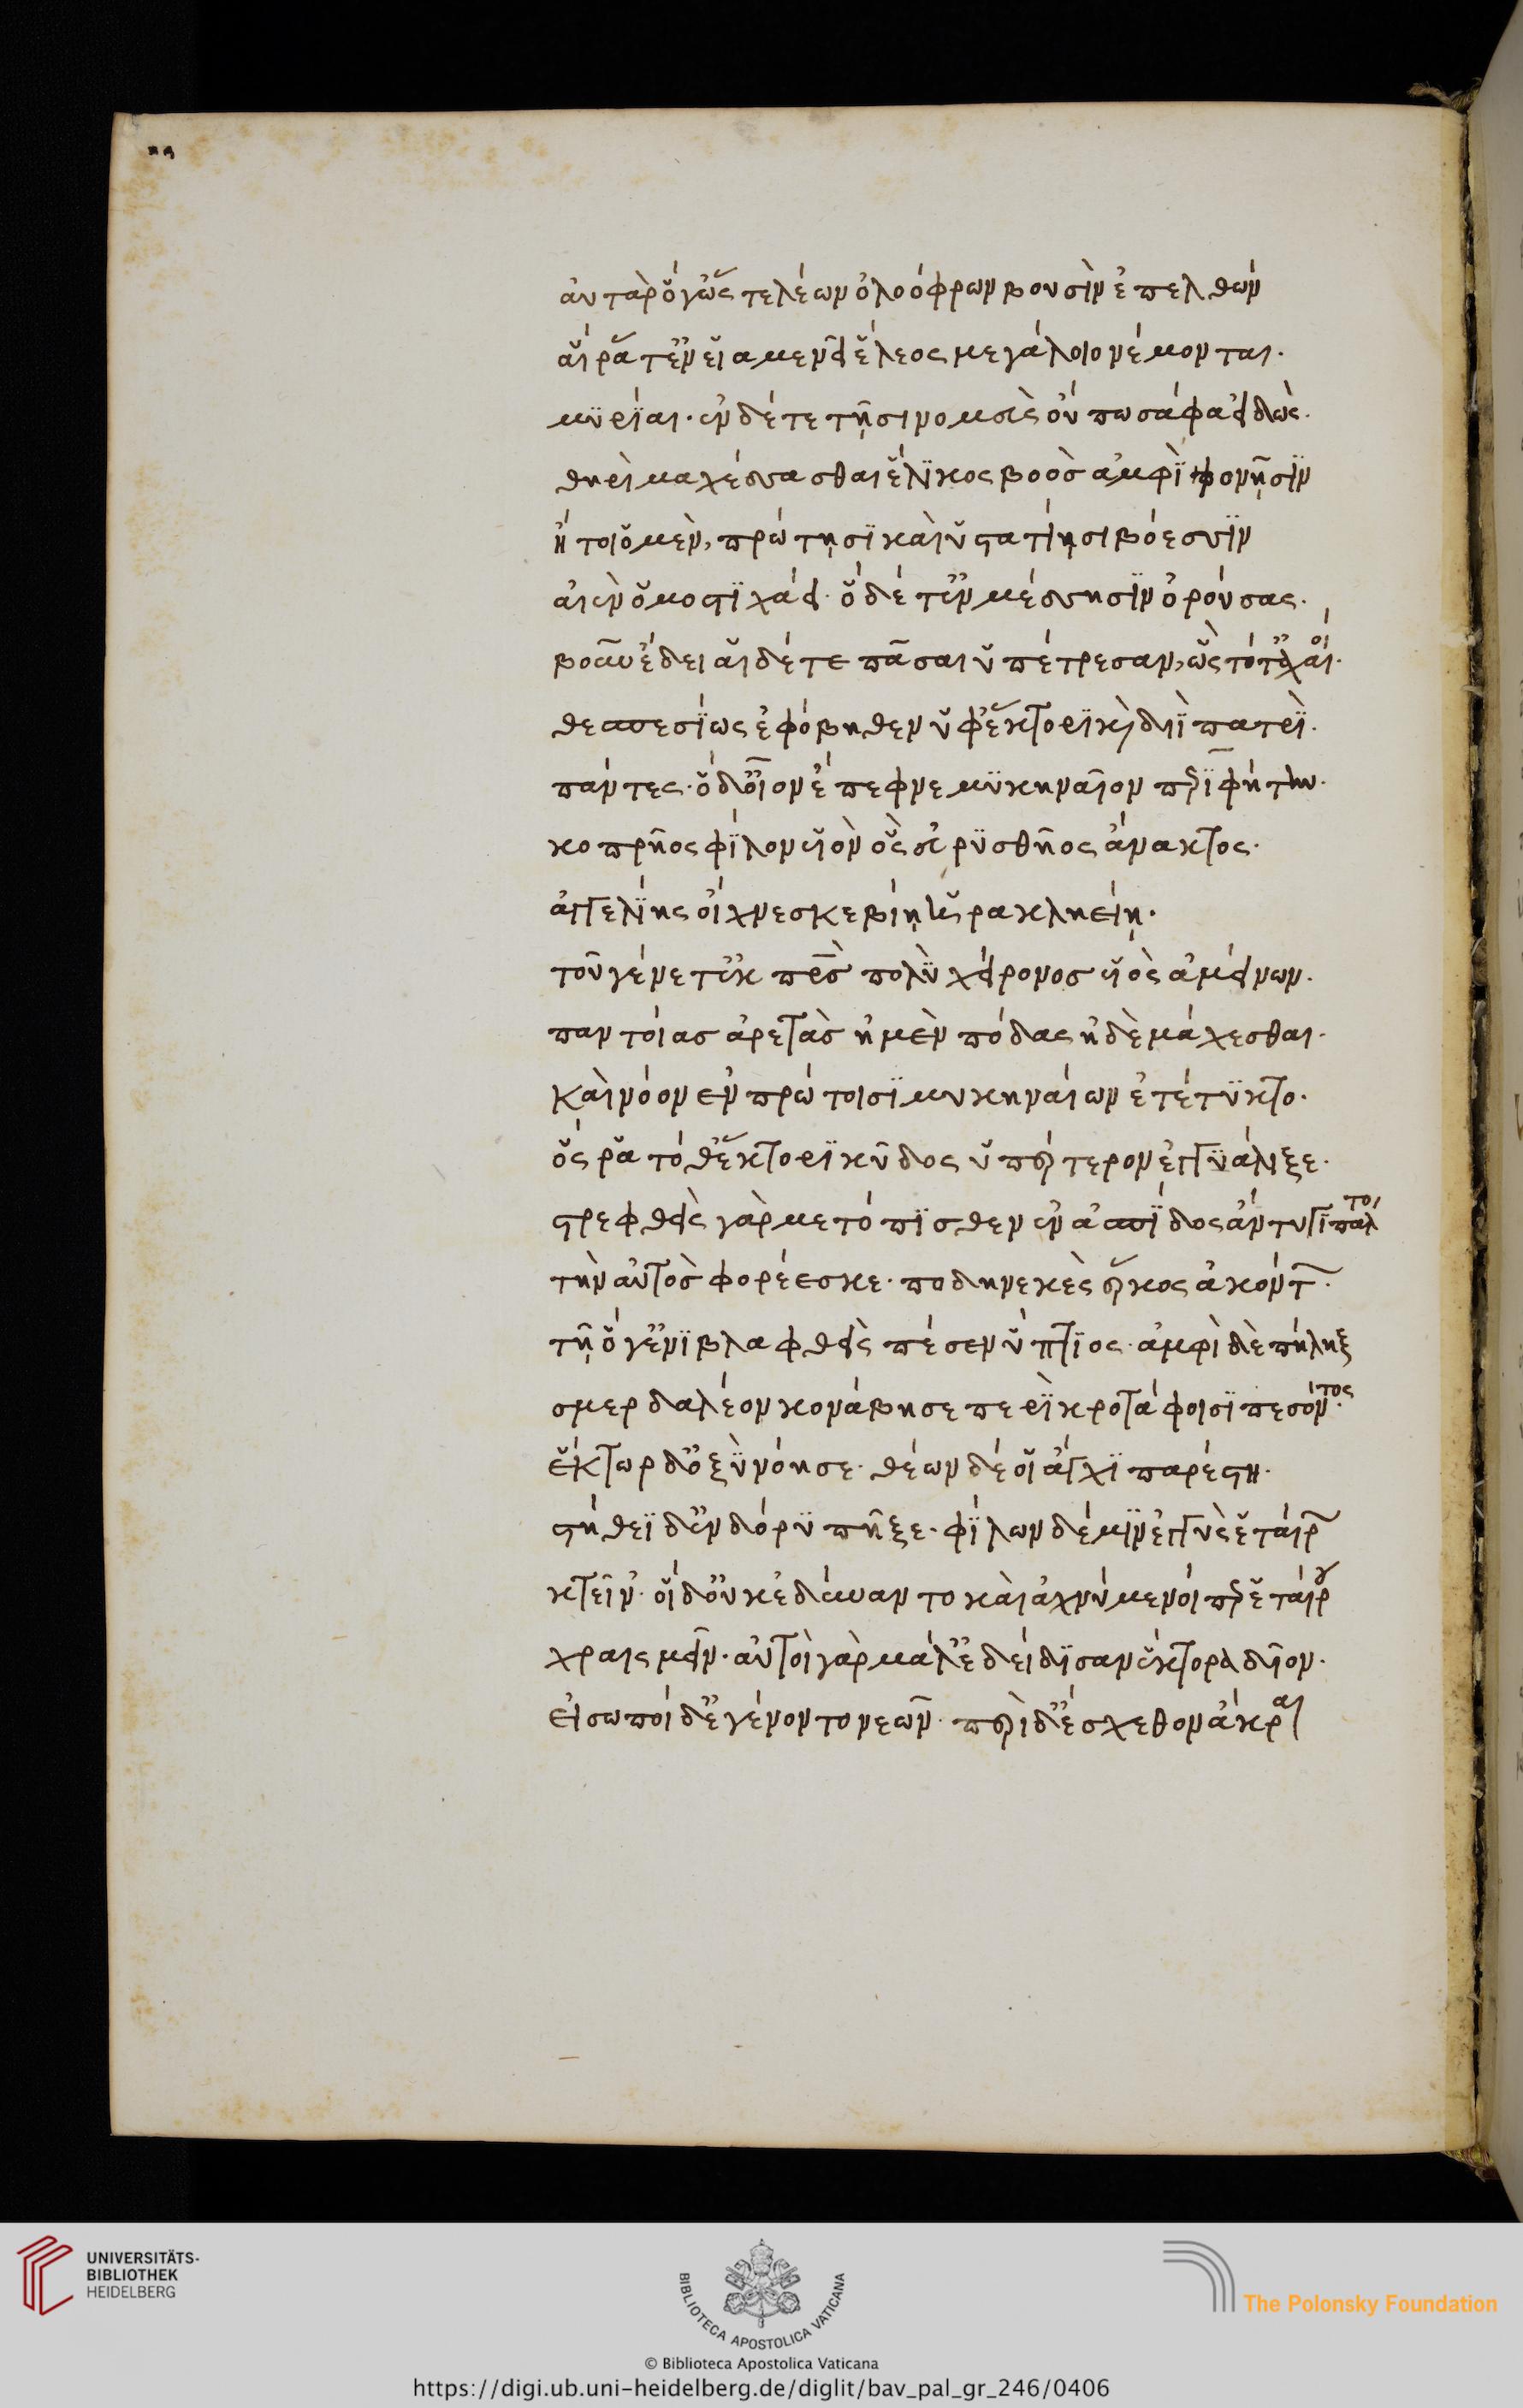 αὐτὰρ ὅγ' ὥς τε λέων ὀλοόφρων βουσὶν ἐπελθών
αἵ ῥά τ' ἐν εἱαμενῇ ἕλεος μεγάλοιο νέμονται.
μϋρίαι· ἐν δέ τε τῇσι νομεὺς οὔπω σάφα εἰδὼς.
θηρὶ μαχέσσασθαι ἕλϊκος βοὸς ἀμφὶ φονῇσϊν
ἤτοι ὁ μὲν, πρώτῃσϊ καὶ ὑστατίῃσι βόεσσϊν
αἰὲν ὁμοστϊχάει. ὁ δέ τ' ἐν μέσσησϊν ὀρούσας.
βοῦν ἔδει αἱ δέ τε πᾶσαι ὑπέτρεσαν, ὣς τότ' ἀχαιοί.
θεσπεσίως ἐφόβηθεν ὑφ' ἕκτορϊ καὶ διῒ πατρί.
πάντες. ὁ δ' οἶον ἔπεφνε μϋκηναῖον περϊφήτην.
κοπρῆος φίλον υἱὸν ὃς εὐρϋσθῆος ἄνακτος.
ἀγγελΐης οἴχνεσκε βίῃ ἡρακληείῃ.
τοῦ γένετ' ἐκ πατρὸς πολὺ χείρονος υἱὸς ἀμείνων.
παντοίας ἀρετὰς ἠμὲν πόδας ἠδὲ μάχεσθαι.
καὶ νόον ἐν πρώτοισϊ μυκηναίων ἐτέτϋκτο.
ὅς ῥα τόθ' ἕκτορϊ κῦδος ὑπέρτερον ἐγγϋάλιξε.
στρεφθεὶς γὰρ μετόπϊσθεν ἐν ἀσπίδος ἄντυγϊ πάλτο
τὴν αὐτὸς φορέεσκε. ποδηνεκὲς ἕρκος ἀκόντων.
τῇ ὅγ' ἐνϊ βλαφθεὶς πέσεν ὕπτϊος. ἀμφὶ δὲ πήληξ
σμερδαλέον κονάβησε περὶ κροτάφοισϊ πεσόντος.
ἕκτωρ δ' ὀξὺ νόησε. θέων δέ οἱ ἄγχϊ παρέστη.
στήθεϊ δ' ἐν δόρϋ πῆξε. φίλων δέ μϊν ἐγγὺς ἑταίρων
κτεῖν'. οἱ δ' οὐκ ἐδύναντο καὶ ἀχνύμενοί περ ἑταίρου
χραισμεῖν. αὐτοὶ γὰρ μάλ' ἐδείδϊσαν ἕκτορα δῖον.
εἰσωποὶ δ' ἐγένοντο νεῶν. περὶ δ' ἔσχεθον ἄκραι
UNIVERSITÄTS-
BIBLIOTHEK
HEIDELBERG
BIBLIOTECA APOSTOLICA VATICANA
The Polonsky Foundation
© Biblioteca Apostolica Vaticana
https://digi.ub.uni-heidelberg.de/diglit/bav_pal_gr_246/0406